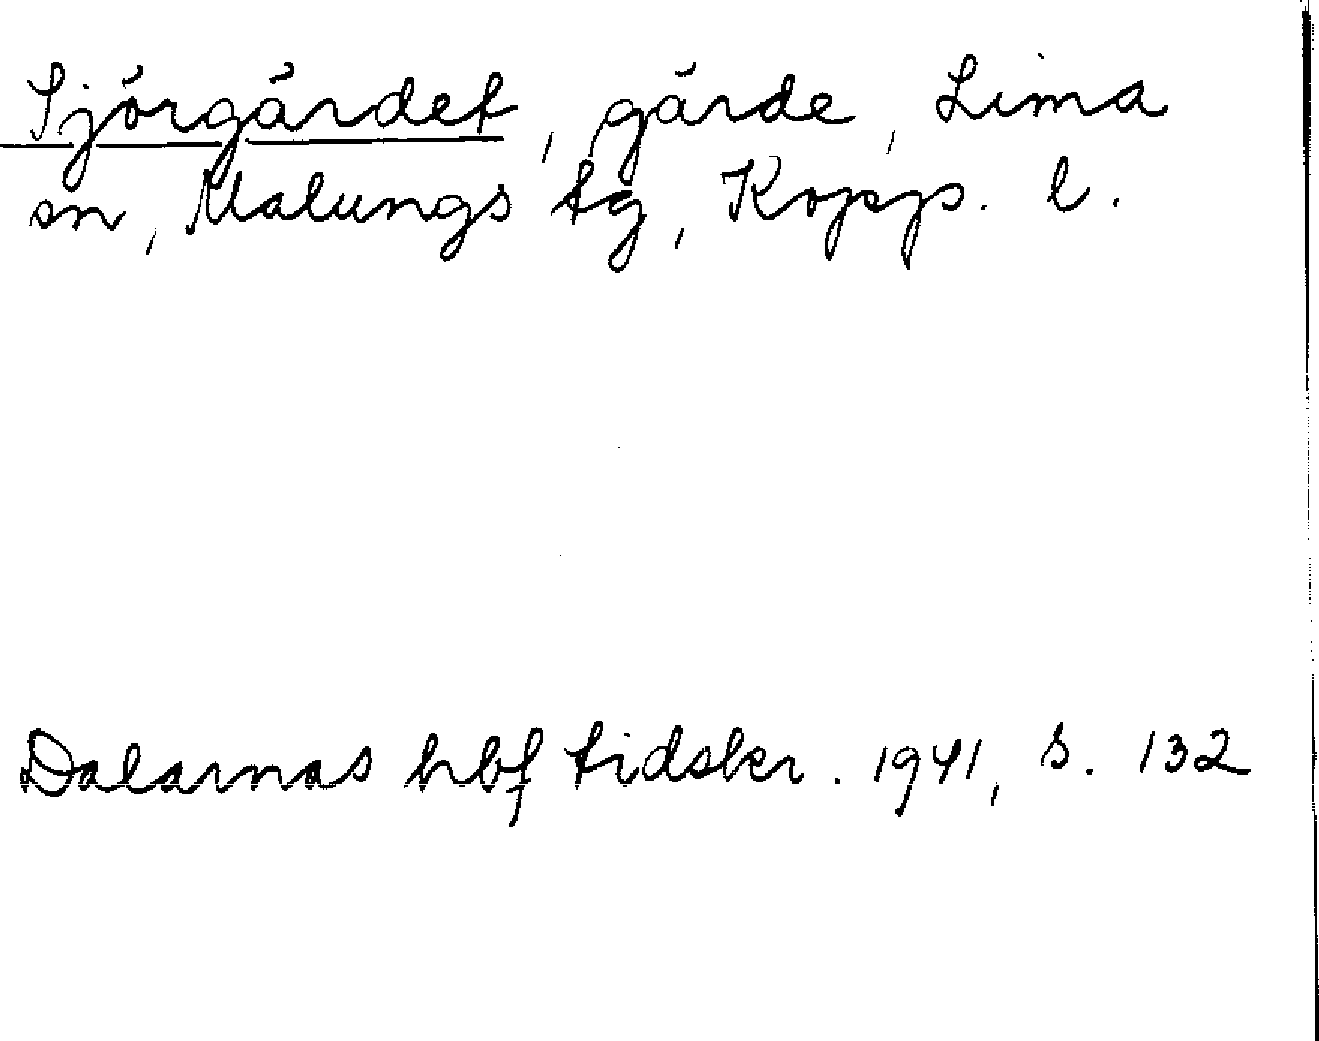 Sjörgärdet, gärde, Lima
sn, Malungs tg, Kopp. l.
Dalarnas hbf tidskr. 1941, s. 132